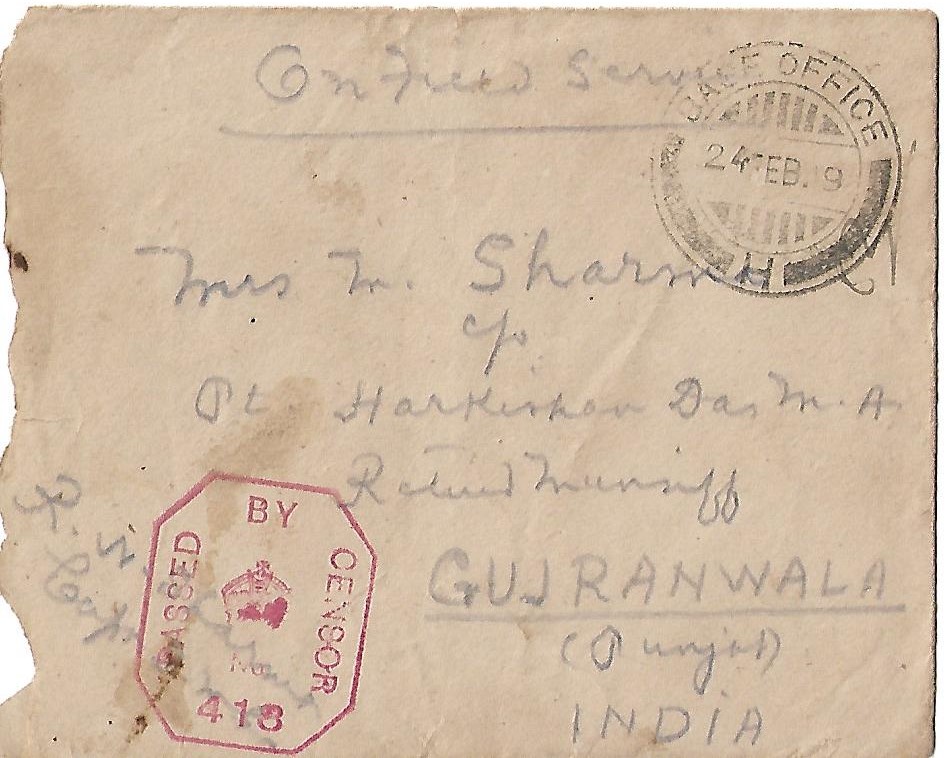 On Field Service
BASE OFFICE
24 FEB. 19
H
Mrs M. Sharma
c/o
Pt. Harkishan Das M.A.
Retired Munsiff
GUJRANWALA
(Punjab)
INDIA
PASSED BY CENSOR
No
418